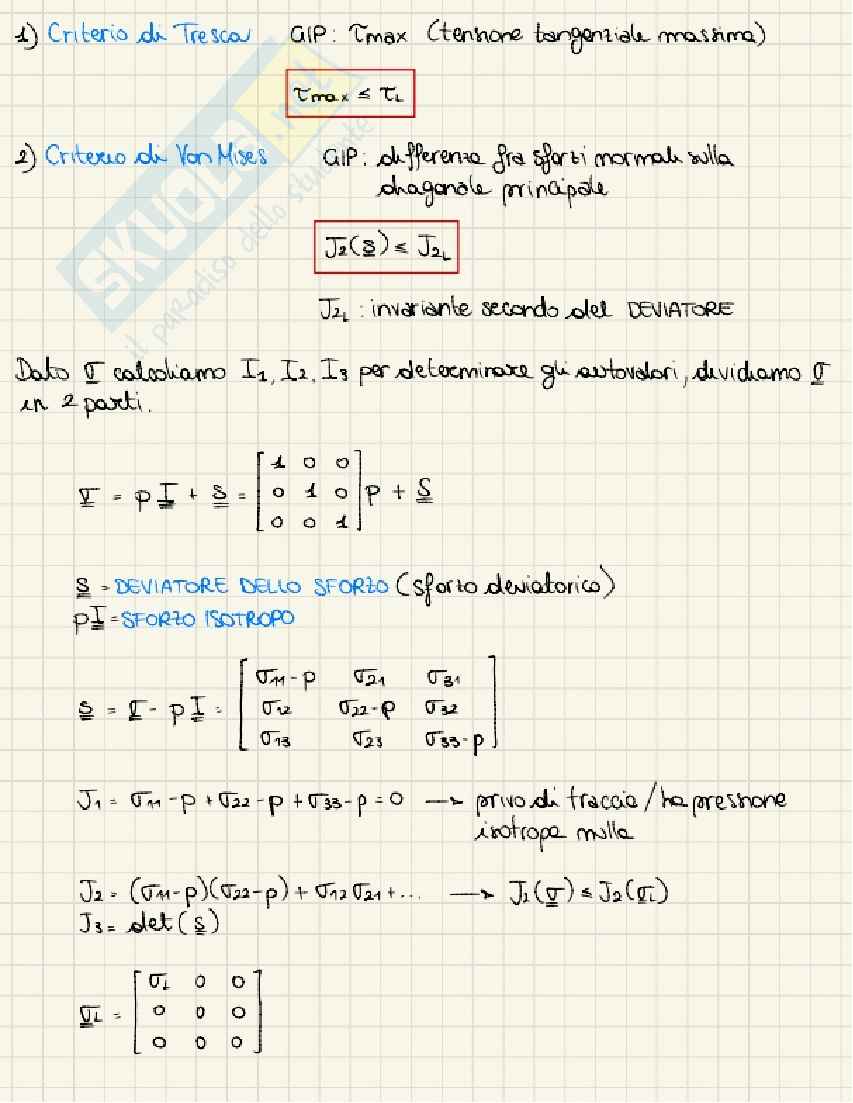 1) Criterio di Tresca GIP: τmax (tensione tangenziale massima)
τmax ≤ τL
2) Criterio di Von Mises GIP: differenza fra sforzi normali sulla
diagonale principale
J2(s) ≤ J2L
J2L : invariante secondo del DEVIATORE
Dato σ calcoliamo I1, I2, I3 per determinare gli autovalori, dividiamo σ
in 2 parti.
σ = p I + s = [1 0 0
0 1 0
0 0 1] p + s
s = DEVIATORE DELLO SFORZO (sforzo deviatorico)
pI = SFORZO ISOTROPO
s = σ - pI = [σ11-p σ21 σ31
σ12 σ22-p σ32
σ13 σ23 σ33-p]
J1 = σ11-p+σ22-p+σ33-p=0 → privo di traccia/ha pressione
isotropa nulla
J2 = (σ11-p)(σ22-p)+σ12σ21+... → J2(σ) ≤ J2(σL)
J3 = det(s)
σL = [σL 0 0
0 0 0
0 0 0]
SKUOLA.net
il paradiso dello studente